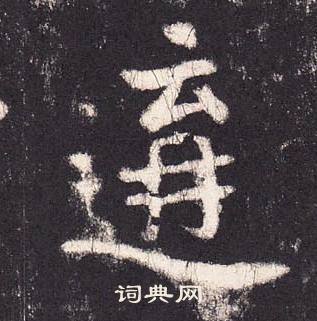 遘
词典网